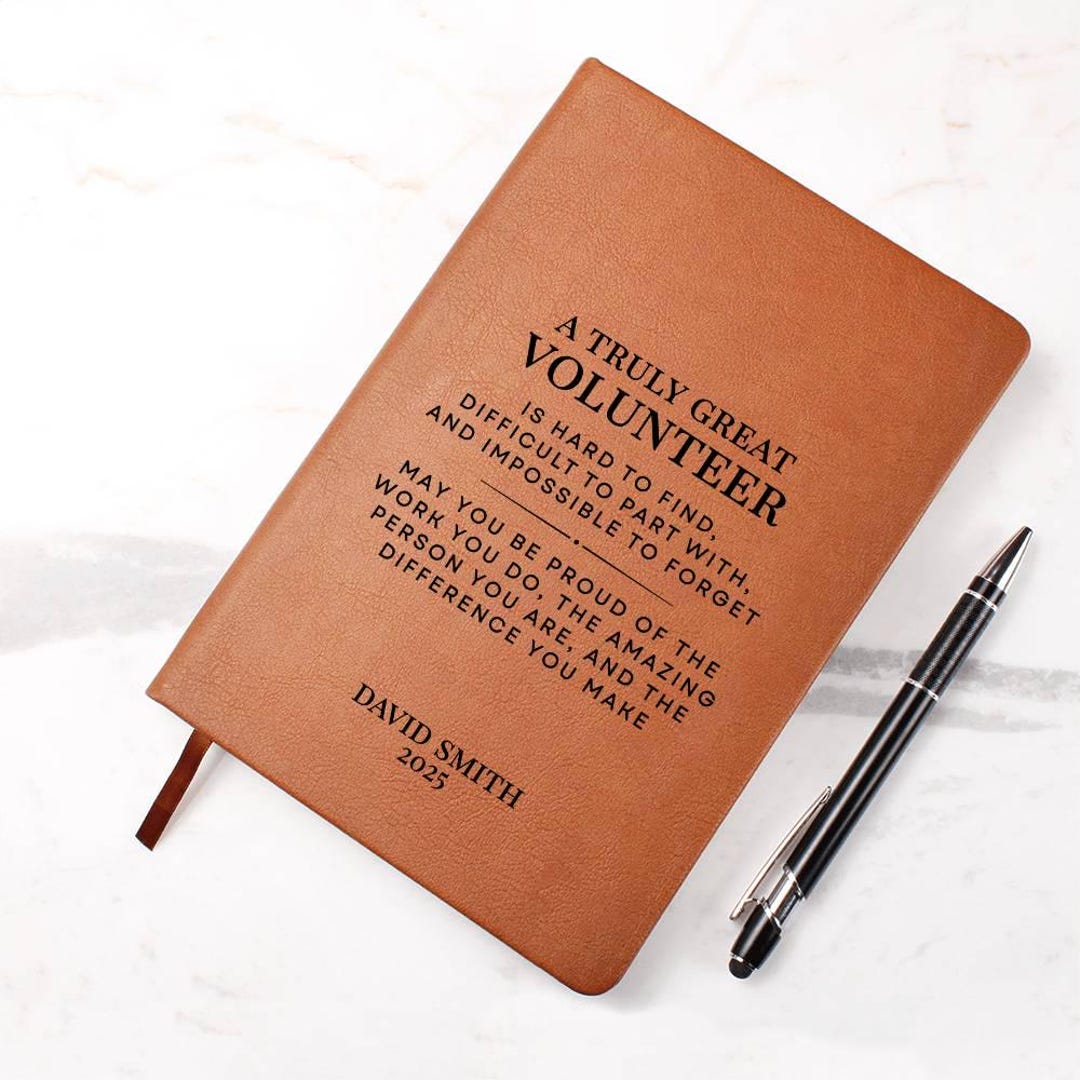 A TRULY GREAT
VOLUNTEER
IS HARD TO FIND,
DIFFICULT TO PART WITH,
AND IMPOSSIBLE TO FORGET
MAY YOU BE PROUD OF THE
WORK YOU DO, THE AMAZING
PERSON YOU ARE, AND THE
DIFFERENCE YOU MAKE
DAVID SMITH
2025